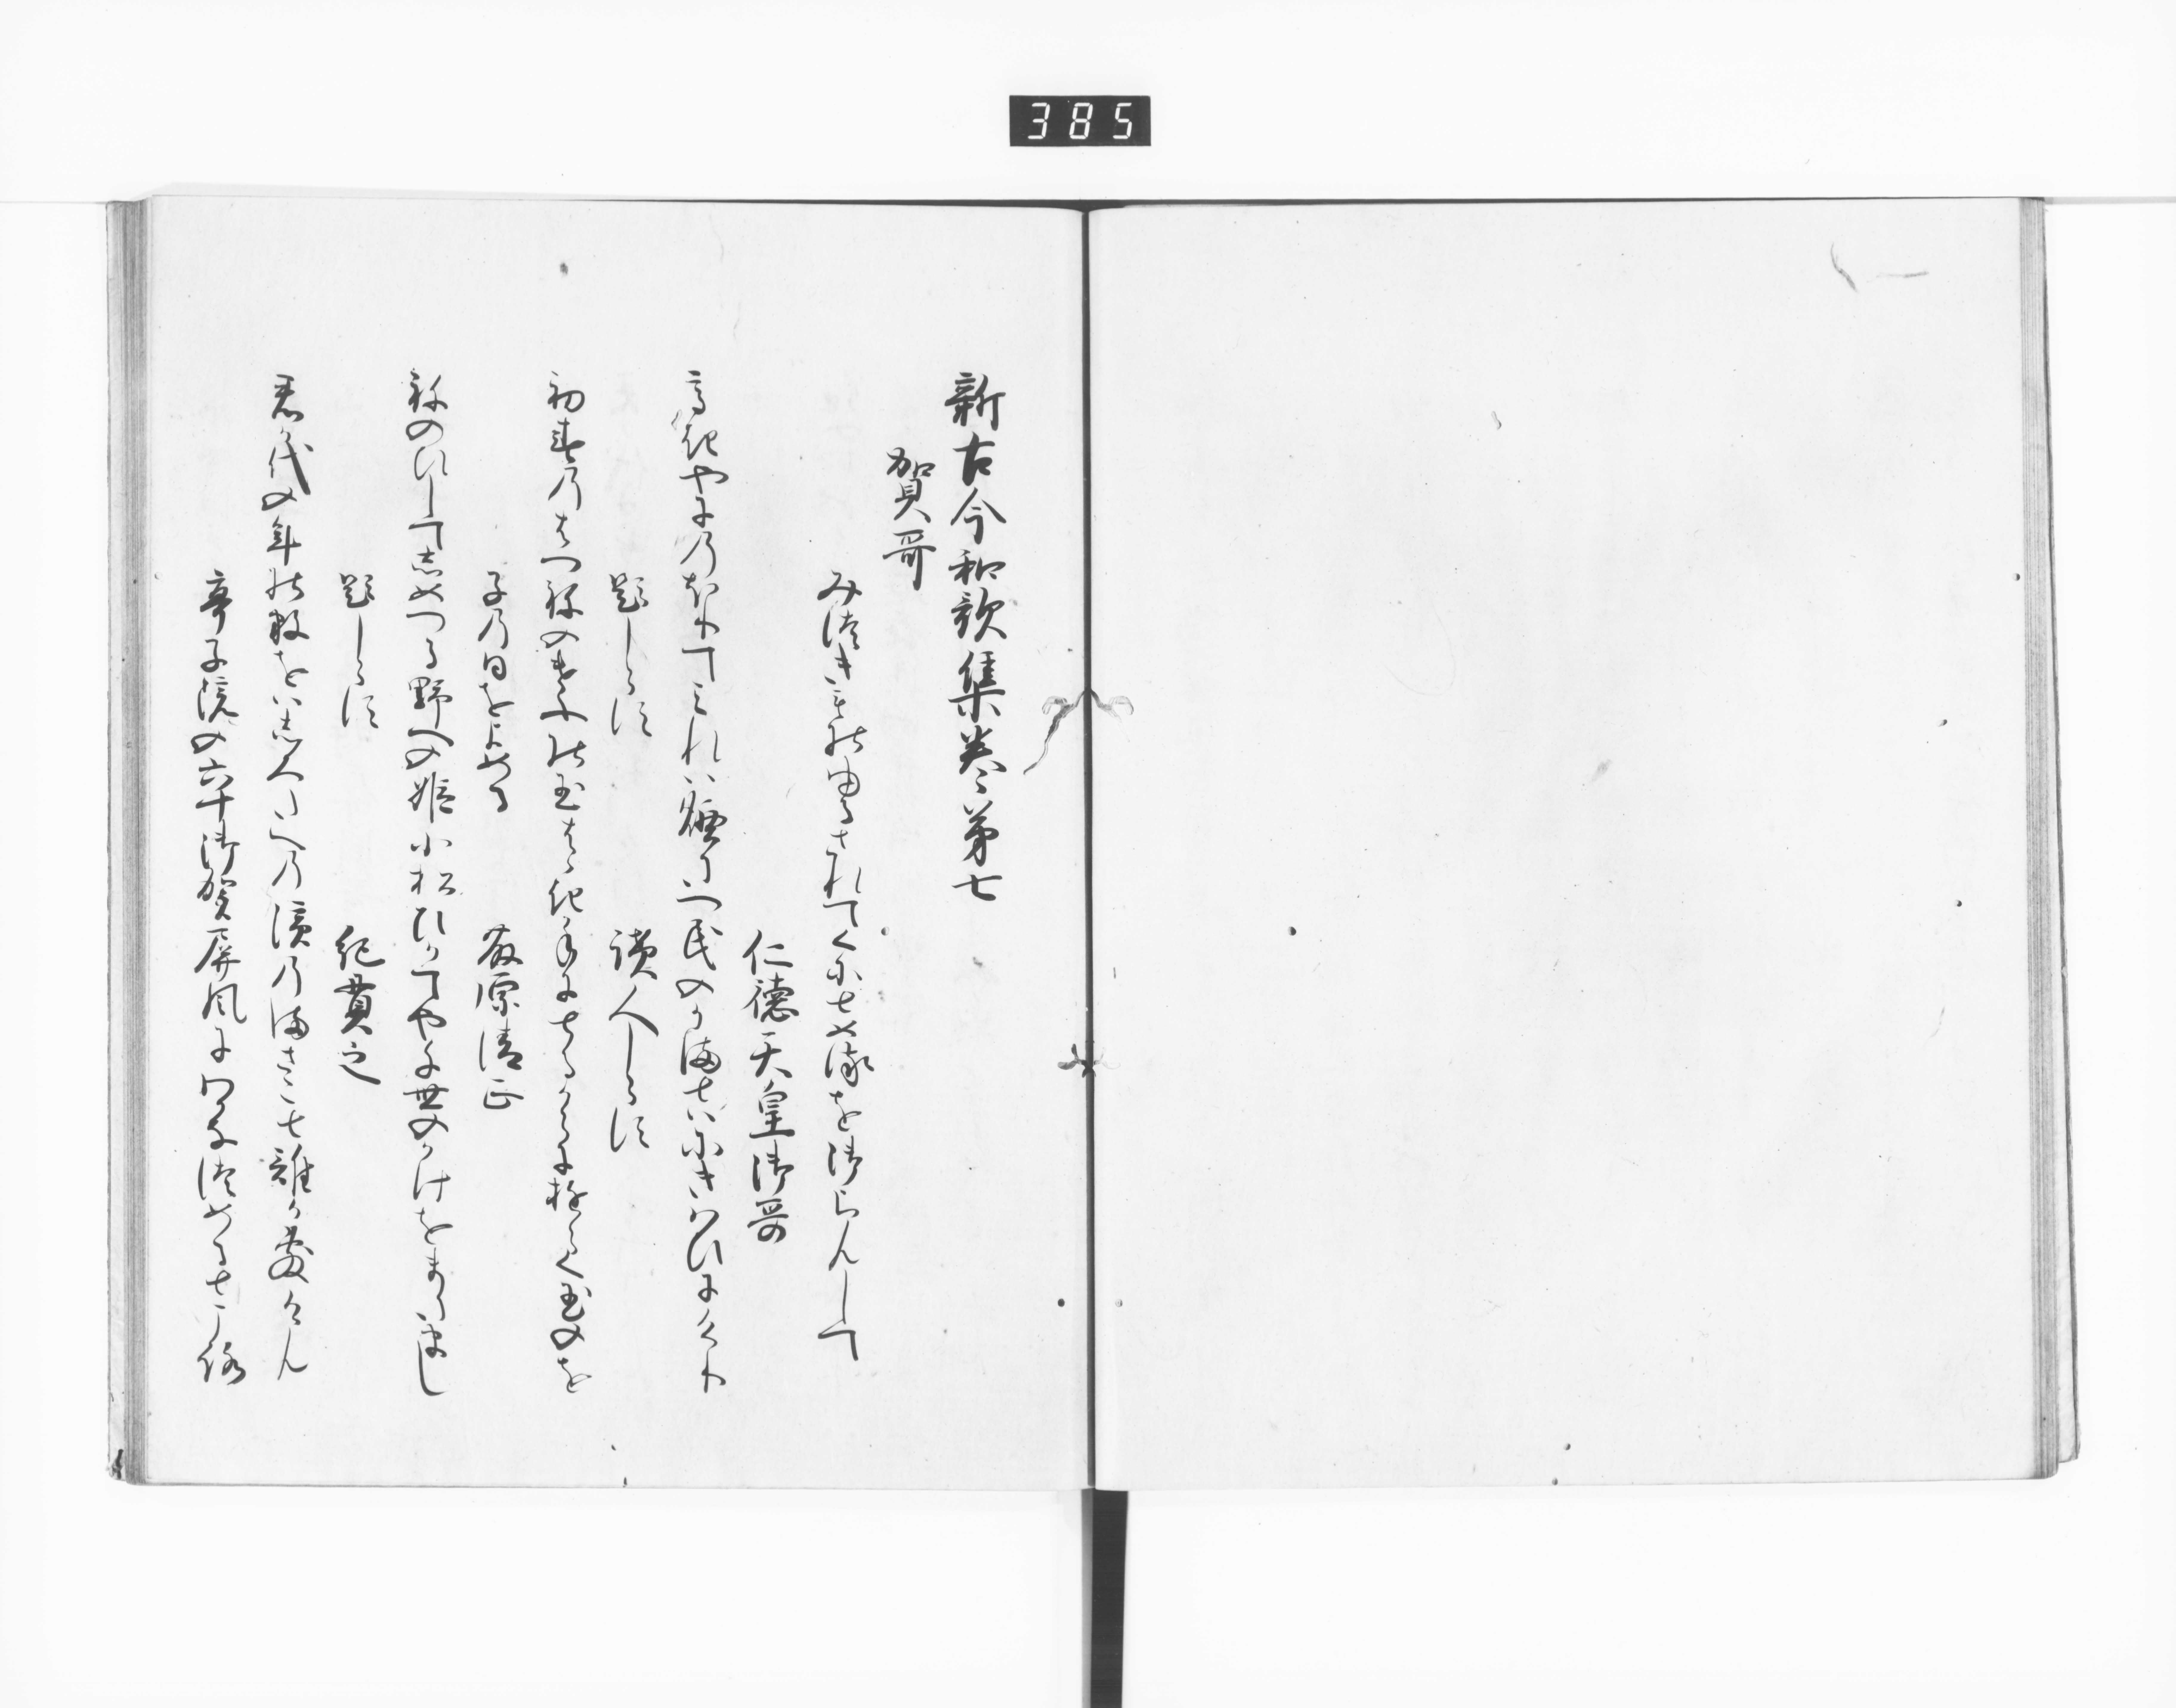 385
新古今和歌集巻第七
賀哥
みつき物ゆるされてくにとめるを御らんして
仁徳天皇御哥
高きやにのほりてみれは煙たつ民のかまとはにきはひにけり
題しらす
讀人しらす
初春のはつねのけふの玉はゝき手にとるからにゆらく玉のを
子の日をよめる
藤原清正
ねのひしてしめつる野へのひめ小松ひかてや千世のかけをまたまし
題しらす
紀貫之
君か代の年の数をは白たへの濱のまさこと誰かいひけん
亭子院の六十御賀屏風にわかなつめるところ